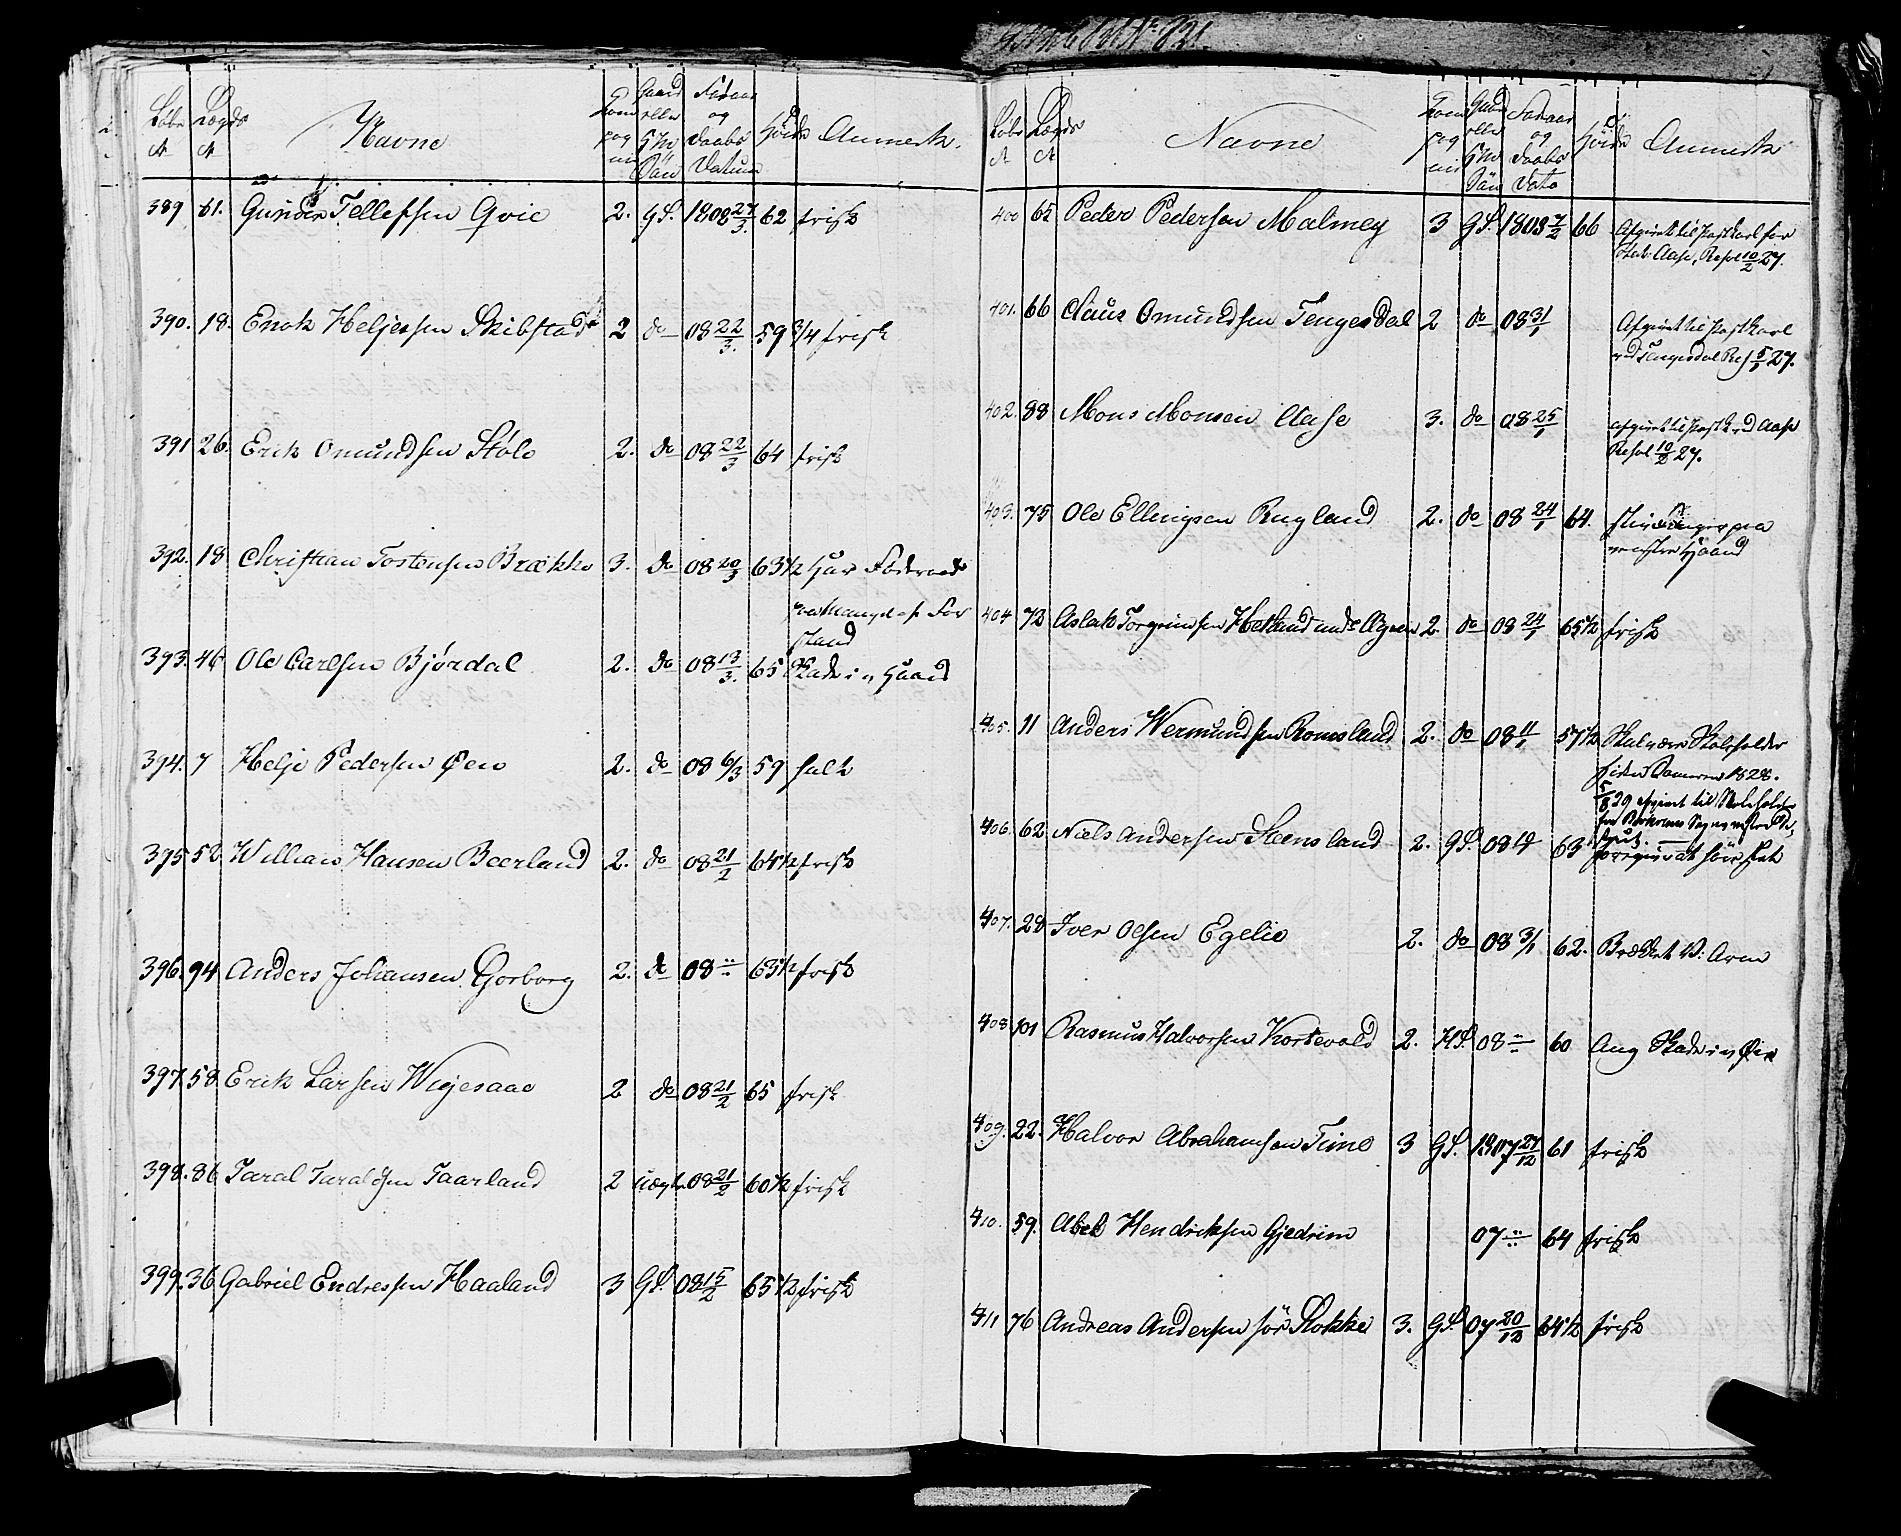 Løbe Lægds Navne Com pag ni Gaard eller Hm Søn Fødaar og Daabs Datum Høide Anmerk.
389 61. Gunder Tellefsen Qvie 2. GS. 1808 27/3. 62 frisk
390. 18. Enok Heljessen Skibstad 2 do 08 22/3. 59 3/4 frisk
391 26. Erik Omundsen Støle 2. do 08 22/3 64 frisk
392. 18 Christian Tostensen Brække 3. do 08 20/3 63 1/2 har
Mangel af For
stand
393. 46 Ole Carlsen Bjørdal 2. do 08 13/3. 65 Skade i Haand
394. 7 Helje Pedersen Øen 2. do 08 6/3 59 halt
395 52 William Hansen Beerland 2. do 08 21/2 64 1/2 frisk
396. 94 Anders Johansen Gorborg 2. do 08 " 63 1/2 frisk
397 58. Erik Larsen Wigesaae 2 do 08 21/2 65 frisk
398. 86 Taral Taralsen Taarland 2 uægte 08 21/2 60 1/2 frisk
399. 36 Gabriel Endressen Haaland 3 GS. 08 15/2 65 1/2 frisk
Løbe Lægds Navne Com pag ni Gaard eller Hm Søn Fødaar og Daabs Dato Høide Anmerk
400 65 Peder Pedersen Malmey 3 GS. 1808 7/2 66 Afgivet til Postkarl for
Aase, Resol 10/2 27.
401. 66 Claus Omundsen Tengesdal 2 do 08 31/1 Afgivet til Postkarl
ved Tengesdal Res 5/1 27.
402. 88 Mons Monsen Aase 3. do 08 25/1 afgivet til Postk ved Aase
Resol 10/2 27.
403. 75 Ole Ellingsen Rugland 2. do 08 24/1 64. paa
venstre Haand
404 72 Aslak Torgrimsen Hetland 2. do 08 24/1 65 1/2 frisk
405. 11 Anders Wermundsen Romsland 2. do 08 11/1 57 1/2 Skal være Skoleholder
siden Sommeren 1828.
5/8 29 afgivet til Skoleholder
406. 62 Niels Andersen Steensland 2. GS. 08 63 foregiver at høre slet
407. 28 Iver Olsen Egelie 2. do 08 3/1 62. Brækket V: Arm
408 101 Rasmus Halvorsen Kortevold 2. HS. 08 " 60 Ang Skade i Øie
409. 22. Halvor Abrahamsen Time 3 GS. 1807 27/12 61 frisk
410. 59. Abel Hendriksen Gjedrim 07 " 64 frisk
411 76 Andreas Andersen sør Stokke 3. GS. 07 20/12 64 1/2 frisk